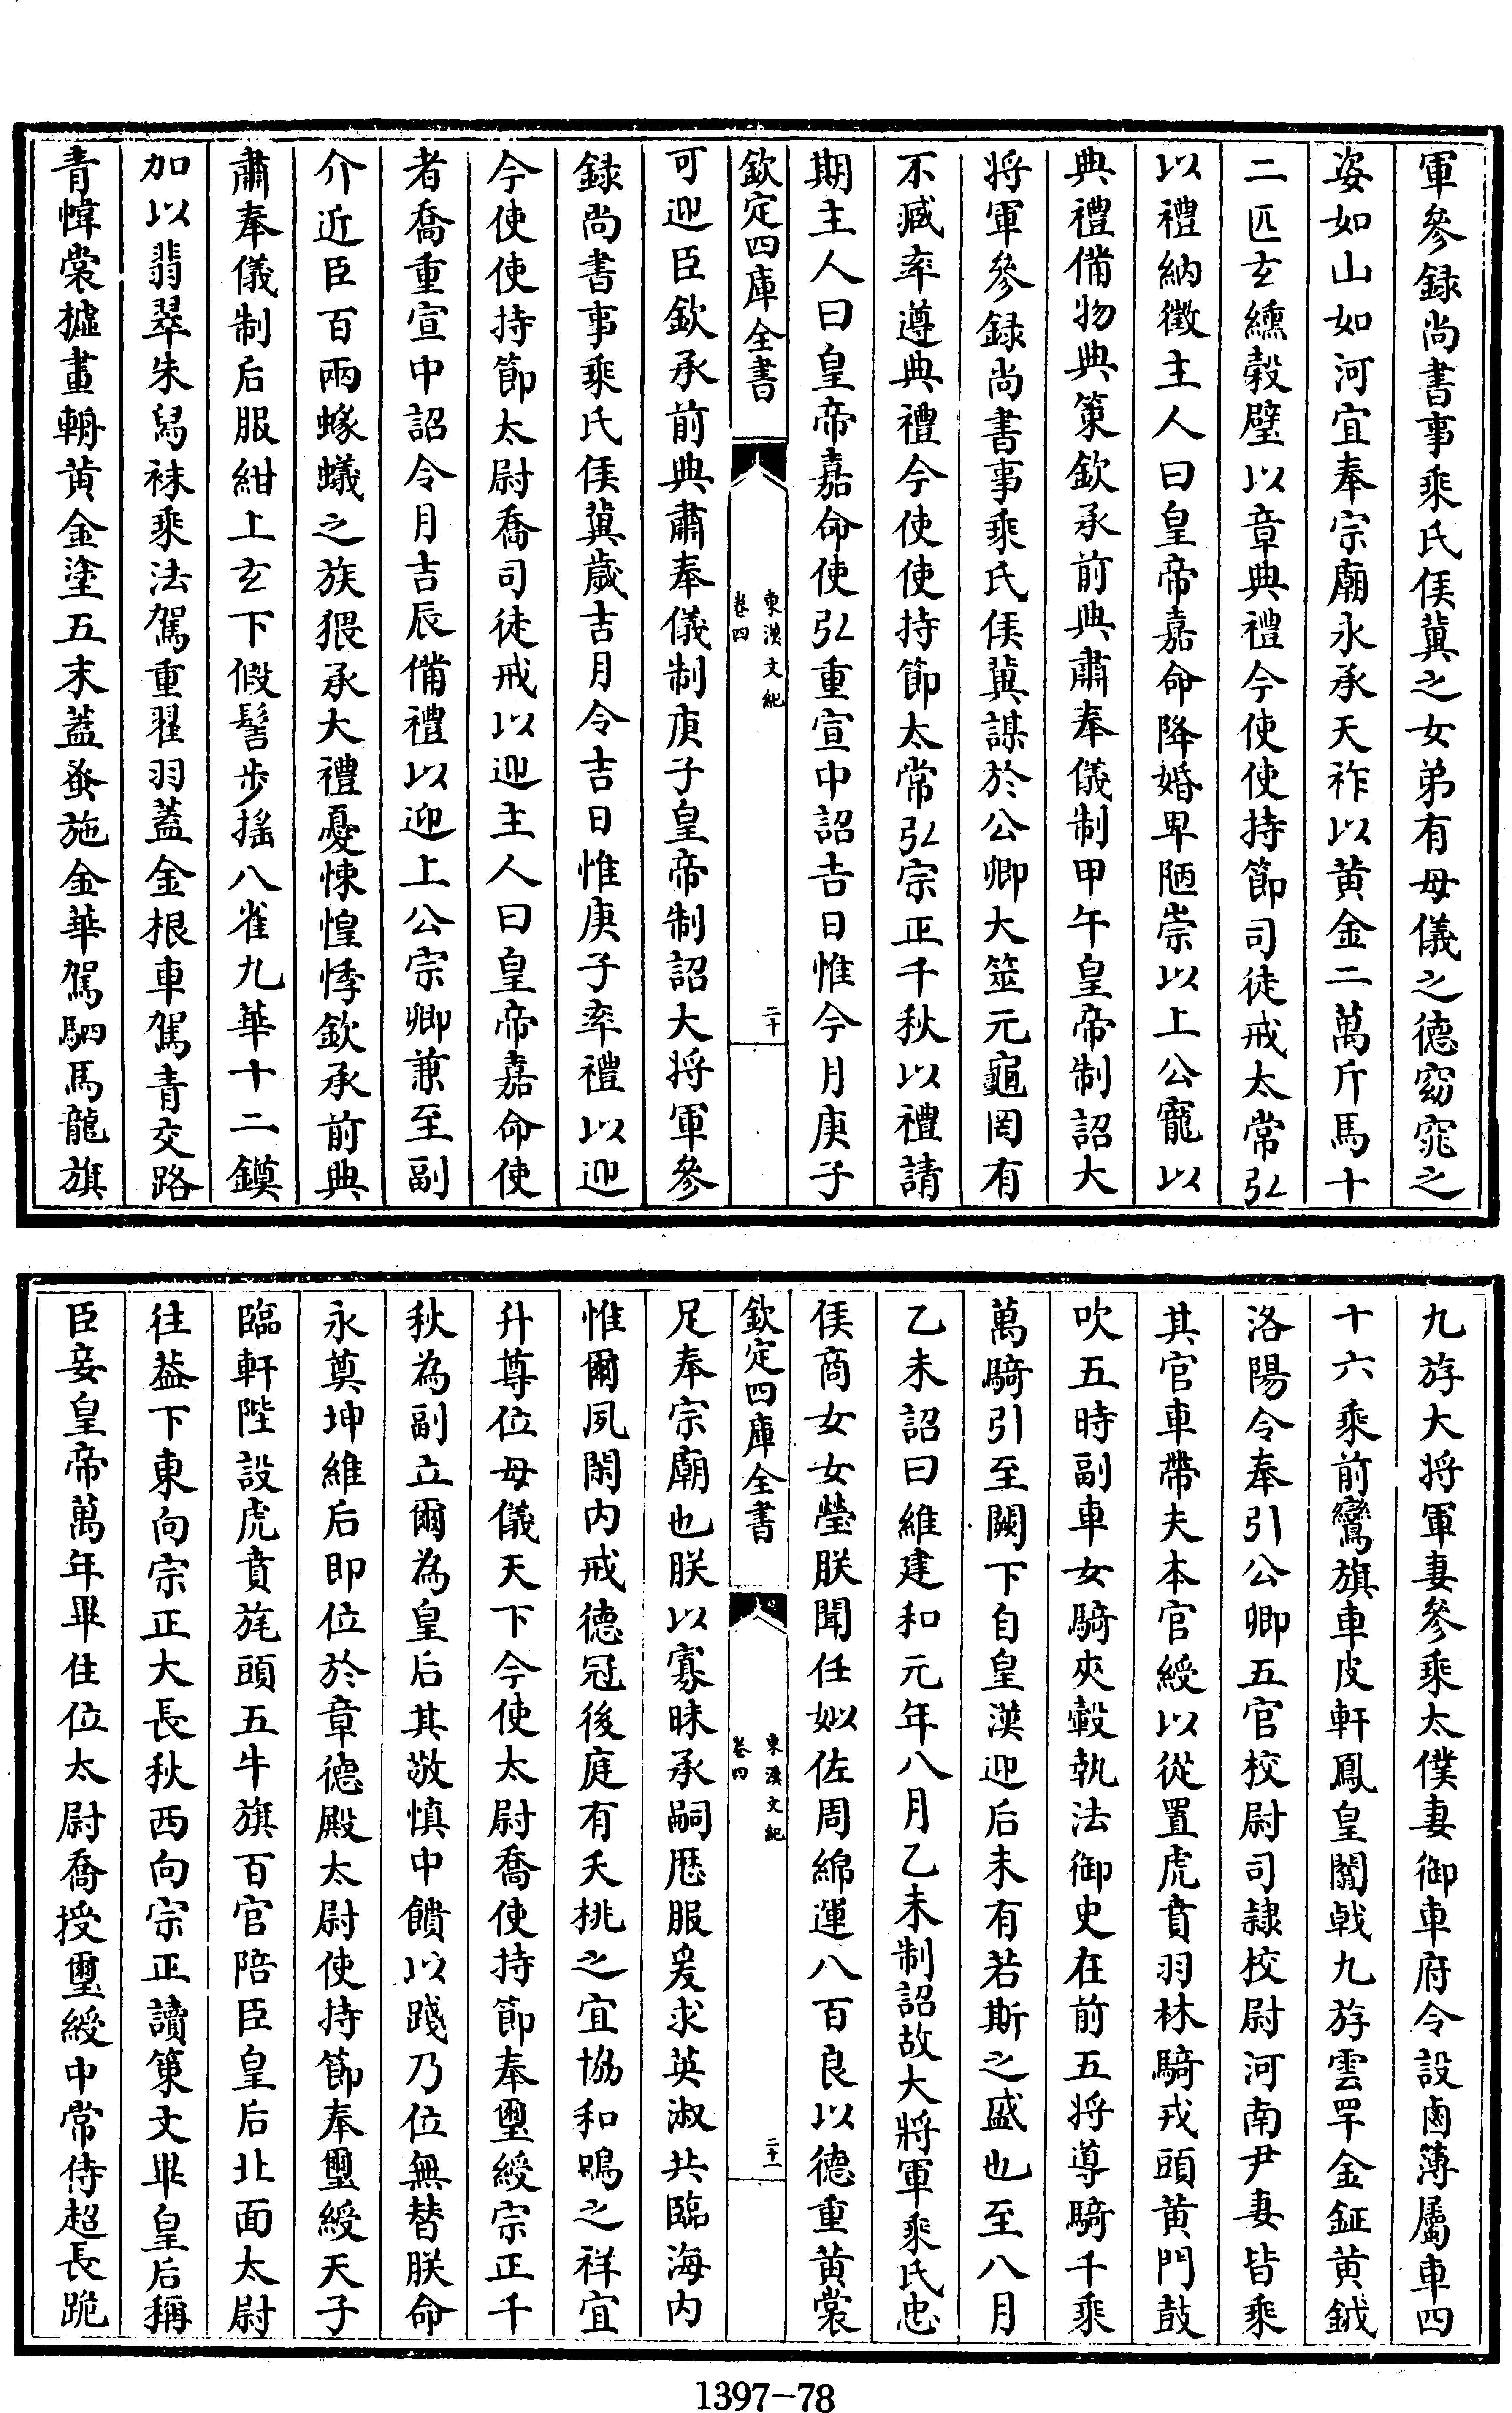 軍參録尚書事乘氏侯冀之女弟有母儀之德窈窕之
姿如山如河宜奉宗廟永承天祚以黄金二萬斤馬十
二匹玄纁榖璧以章典禮今使使持節司徒戒太常弘
以禮納徵主人曰皇帝嘉命降婚卑陋崇以上公寵以
典禮備物典策欽承前典肅奉儀制甲午皇帝制詔大
將軍參録尚書事乘氏侯冀謀於公卿大筮元龜罔有
不臧率遵典禮今使使持節太常弘宗正千秋以禮請
期主人曰皇帝嘉命使弘重宣中詔吉日惟今月庚子
欽定四庫全書
東漢文紀
卷四
二十
可迎臣欽承前典肅奉儀制庚子皇帝制詔大將軍參
録尚書事乘氏侯冀歲吉月令吉日惟庚子率禮以迎
今使使持節太尉喬司徒戒以迎主人曰皇帝嘉命使
者喬重宣中詔令月吉辰備禮以迎上公宗卿兼至副
介近臣百兩蜂蟻之族猥承大禮憂悚惶悸欽承前典
肅奉儀制后服紺上玄下假髻步摇八雀九華十二鏌
加以翡翠朱舄袜乘法駕重翟羽蓋金根車駕青交路
青幃裳㯫畫輈黄金塗五末蓋蚤施金華駕駟馬龍旗
九斿大將軍妻參乘太僕妻御車府令設鹵簿屬車四
十六乘前鸞旗車皮軒鳳皇闟戟九斿雲罕金鉦黄鉞
洛陽令奉引公卿五官校尉司隷校尉河南尹妻皆乘
其官車帶夫本官綬以從置虎賁羽林騎戎頭黄門鼓
吹五時副車女騎夾轂執法御史在前五將導騎千乘
萬騎引至闕下自皇漢迎后未有若斯之盛也至八月
乙未詔曰維建和元年八月乙未制詔故大將軍乘氏忠
侯商女女瑩朕聞任姒佐周綿運八百良以德重黄裳
欽定四庫全書
東漢文紀
卷四
二十一
足奉宗廟也朕以寡昧承嗣厯服爰求英淑共臨海内
惟爾夙閑内戒德冠後庭有夭桃之宜協和鳴之祥宜
升尊位母儀天下今使太尉喬使持節奉璽綬宗正千
秋為副立爾為皇后其敬慎中饋以踐乃位無替朕命
永奠坤維后即位於章德殿太尉使持節奉璽綬天子
臨軒陛設虎賁旄頭五牛旗百官陪臣皇后北面太尉
往葢下東向宗正大長秋西向宗正讀策文畢皇后稱
臣妾皇帝萬年畢住位太尉喬授璽綬中常侍超長跪
1397-78